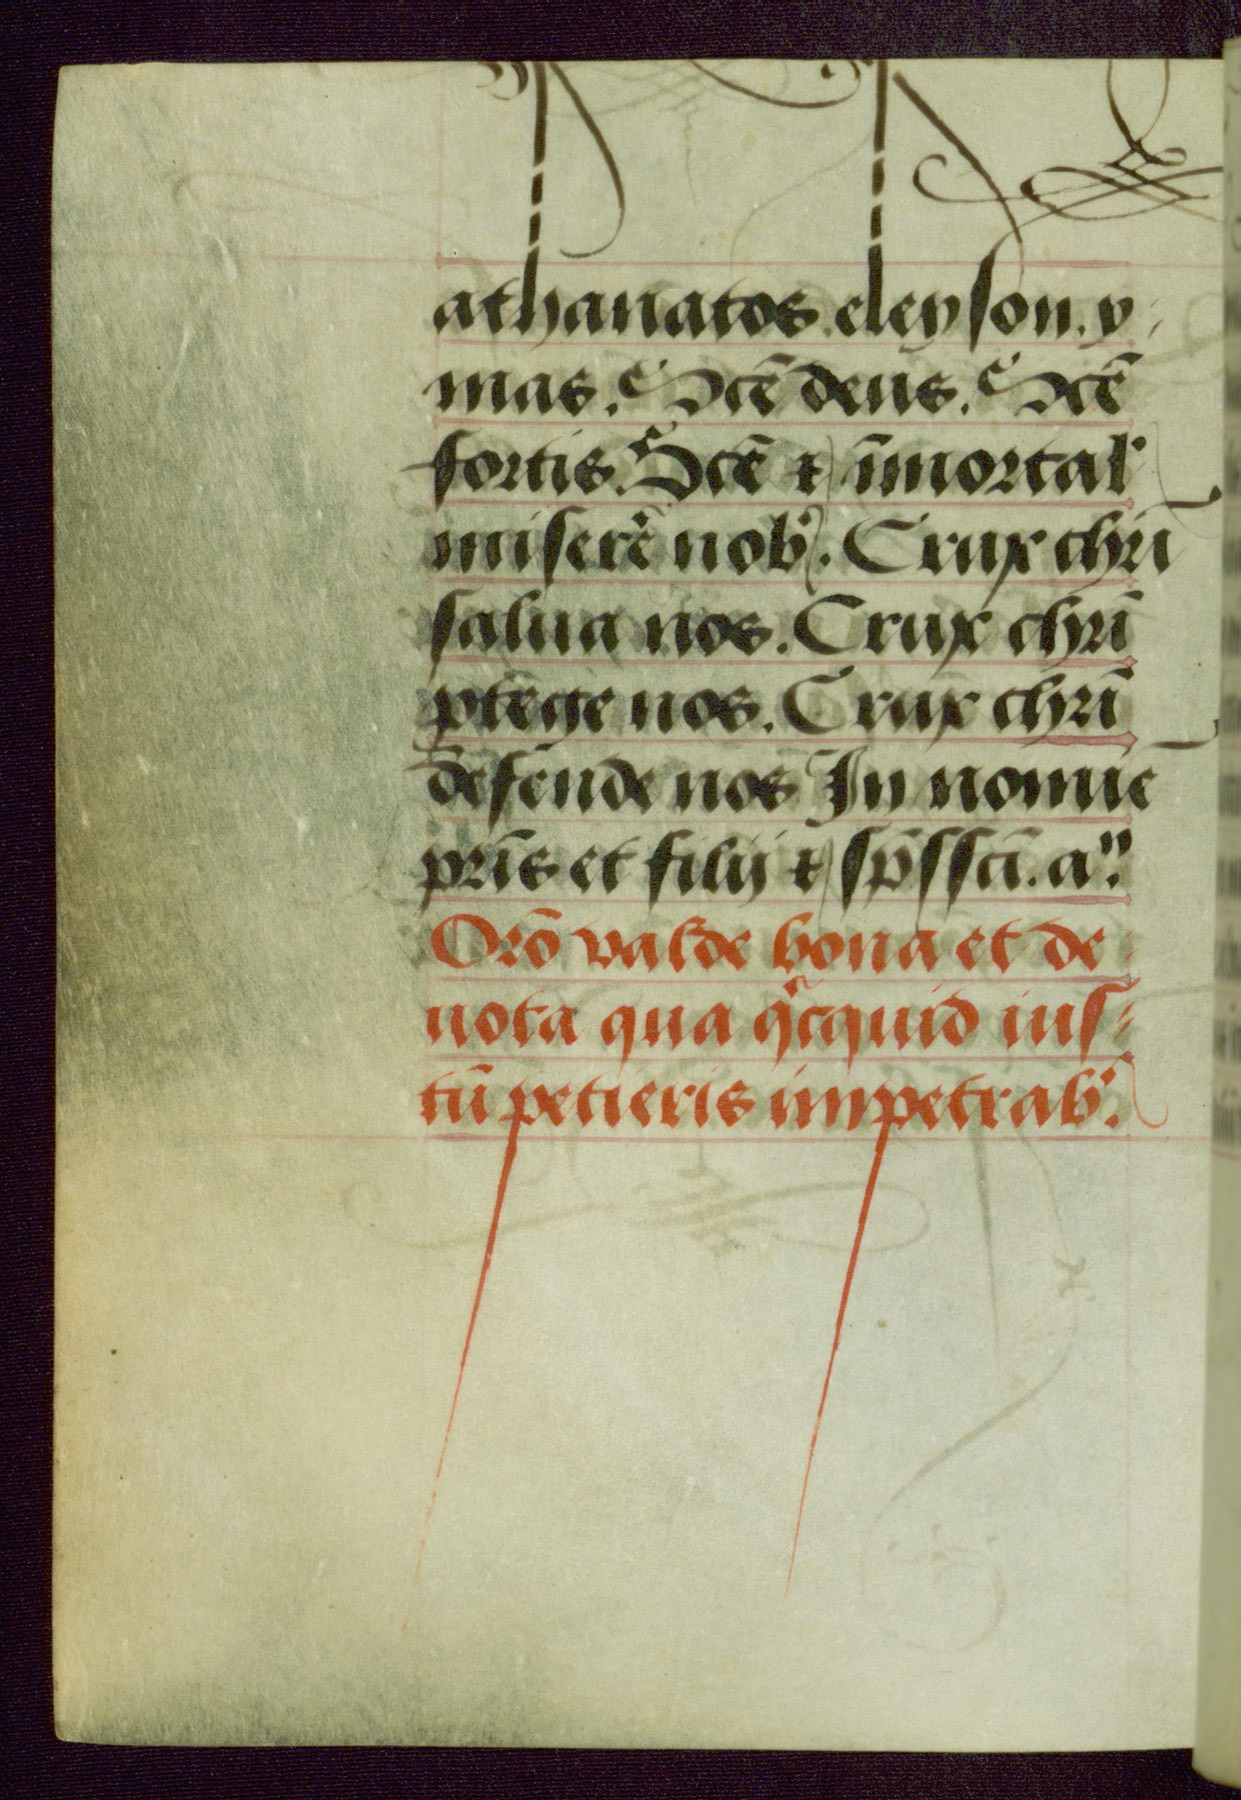 athanatos. eleyson. y-
mas. Scē deus. Scē
fortis. Scē et īmortal'
miserē nob'. Crux chrī
salua nos. Crux chrī
ptege nos. Crux chrī
defende nos In nomīe
prīs et filij et sp̄s scī. a".
Orō valde bona et de-
uota qua qicquid ius-
tū petieris impetrab'.